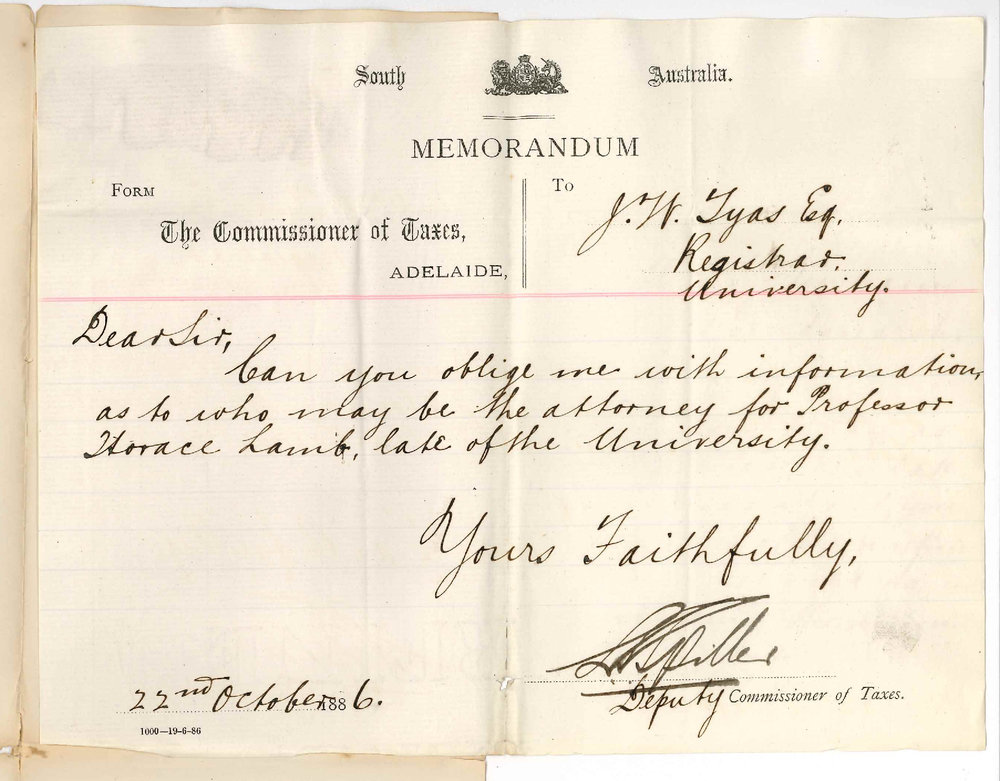 South Australia.
MEMORANDUM
FORM
The Commissioner of Taxes,
ADELAIDE,
To
J. W. Tyas Esq.
Registrar.
University.
Dear Sir,
Can you oblige me with information,
as to who may be the attorney for Professor
Horace Lamb, late of the University.
Yours Faithfully,
Deputy Commissioner of Taxes.
22nd October 1886.
1000—19-6-86